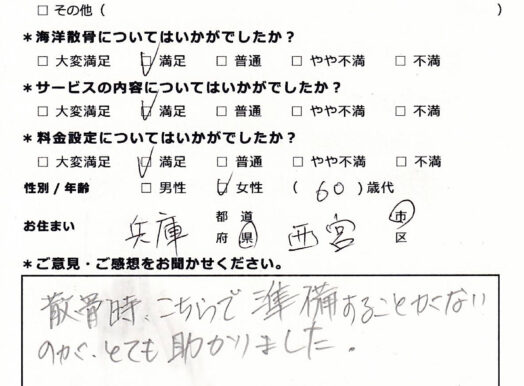 □ その他 (                    )
*海洋散骨についてはいかがでしたか？
□ 大変満足 ☑ 満足 □ 普通 □ やや不満 □ 不満
*サービスの内容についてはいかがでしたか？
□ 大変満足 ☑ 満足 □ 普通 □ やや不満 □ 不満
*料金設定についてはいかがでしたか？
□ 大変満足 ☑ 満足 □ 普通 □ やや不満 □ 不満
性別 / 年齢 □ 男性 ☑ 女性 ( 60 ) 歳代
お住まい 兵庫 都 道 府 県 西宮 市 区
*ご意見・ご感想をお聞かせください。
散骨時、こちらで準備することがない
のが、とても助かりました。